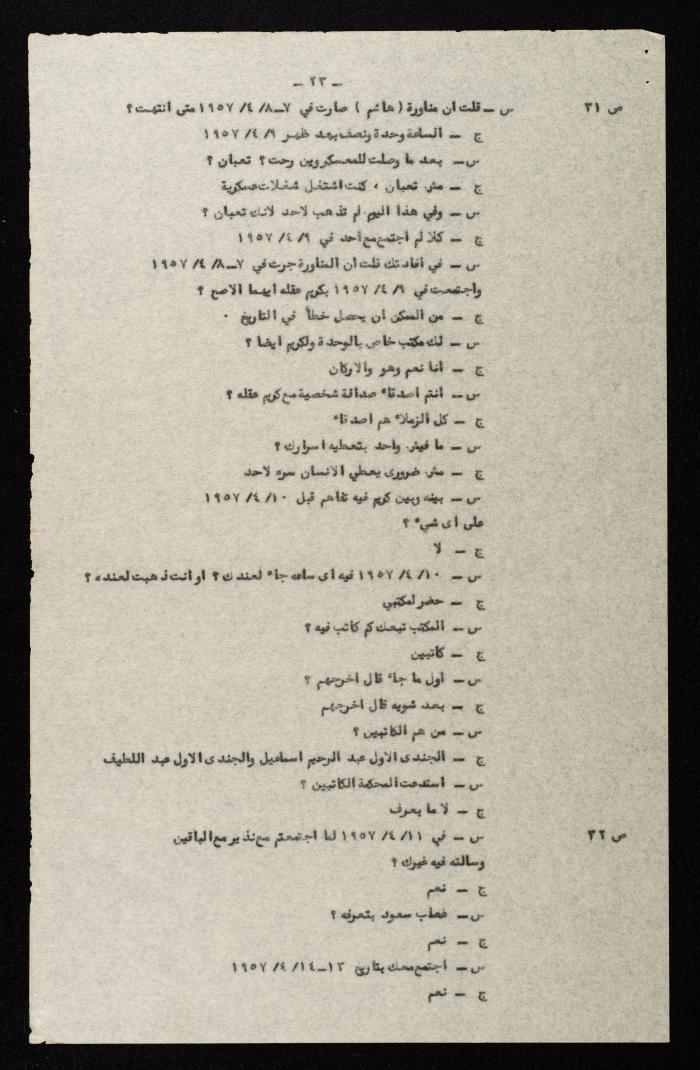 - ٢٣ -
ص ٣١ س - قلت ان مناورة ( هاشم ) صارت في ٧-٨/ ٤/ ١٩٥٧ متى انتهت ؟
ج - الساعة وحدة ونصف بعد ظهر ٩/ ٤/ ١٩٥٧
س - بعد ما وصلت للمعسكر وين رحت ؟ تعبان ؟
ج - مش تعبان ، كنت اشتغل شغلات عسكرية
س - وفي هذا اليوم لم تذهب لاحد لانك تعبان ؟
ج - كلا لم اجتمع مع احد في ٩/ ٤/ ١٩٥٧
س - في افادتك قلت ان المناورة جرت في ٧-٨/ ٤/ ١٩٥٧
واجتمعت في ٩/ ٤/ ١٩٥٧ بكريم عقله ايهما الاصح ؟
ج - من الممكن ان يحصل خطأ في التاريخ .
س - لك مكتب خاص بالوحدة ولكريم ايضا ؟
ج - انا نعم وهو والاركان
س - انتم اصدقاء صداقة شخصية مع كريم عقله ؟
ج - كل الزملاء هم اصدقاء
س - ما فيش واحد بتعطيه اسرارك ؟
ج - مش ضروري يعطي الانسان سره لاحد
س - بينه وبين كريم فيه تفاهم قبل ١٠/ ٤/ ١٩٥٧
على اى شيء ؟
ج - لا
س - ١٠/ ٤/ ١٩٥٧ فيه اى ساعه جاء لعندك ؟ او انت ذهبت لعنده ؟
ج - حضر لمكتبي
س - المكتب تبعك كم كاتب فيه ؟
ج - كاتبين
س - اول ما جاء قال اخرجهم ؟
ج - بعد شويه قال اخرجهم
س - من هم الكاتبين ؟
ج - الجندى الاول عبد الرحيم اسماعيل والجندى الاول عبد اللطيف
س - استدعت المحكمة الكاتبين ؟
ج - لا ما بعرف
ص ٣٢ س - في ١١/ ٤/ ١٩٥٧ لما اجتمعتم مع نذير مع الباقين
وسالته فيه غيرك ؟
ج - نعم
س - خطاب سعود بتعرفه ؟
ج - نعم
س - اجتمع معك بتاريخ ١٣-١٤/ ٤/ ١٩٥٧
ج - نعم